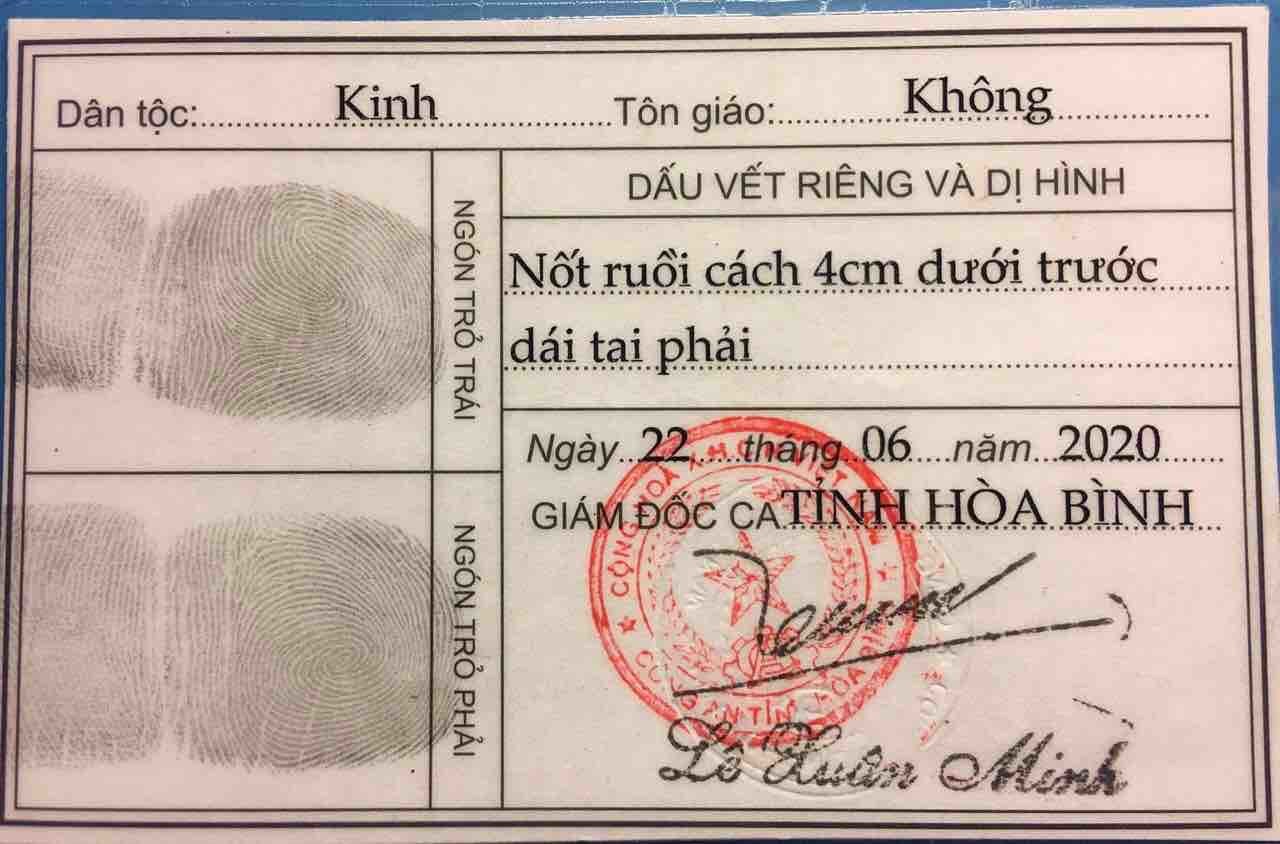 Dân tộc: Kinh Tôn giáo: Không
NGÓN TRỎ TRÁI
DẤU VẾT RIÊNG VÀ DỊ HÌNH
Nốt ruồi cách 4cm dưới trước
dái tai phải
NGÓN TRỎ PHẢI
Ngày 22 tháng 06 năm 2020
GIÁM ĐỐC CA TỈNH HÒA BÌNH
CỘNG HÒA X.H.C.N VIỆT NAM
CÔNG AN TỈNH HÒA BÌNH
Lê Xuân Minh